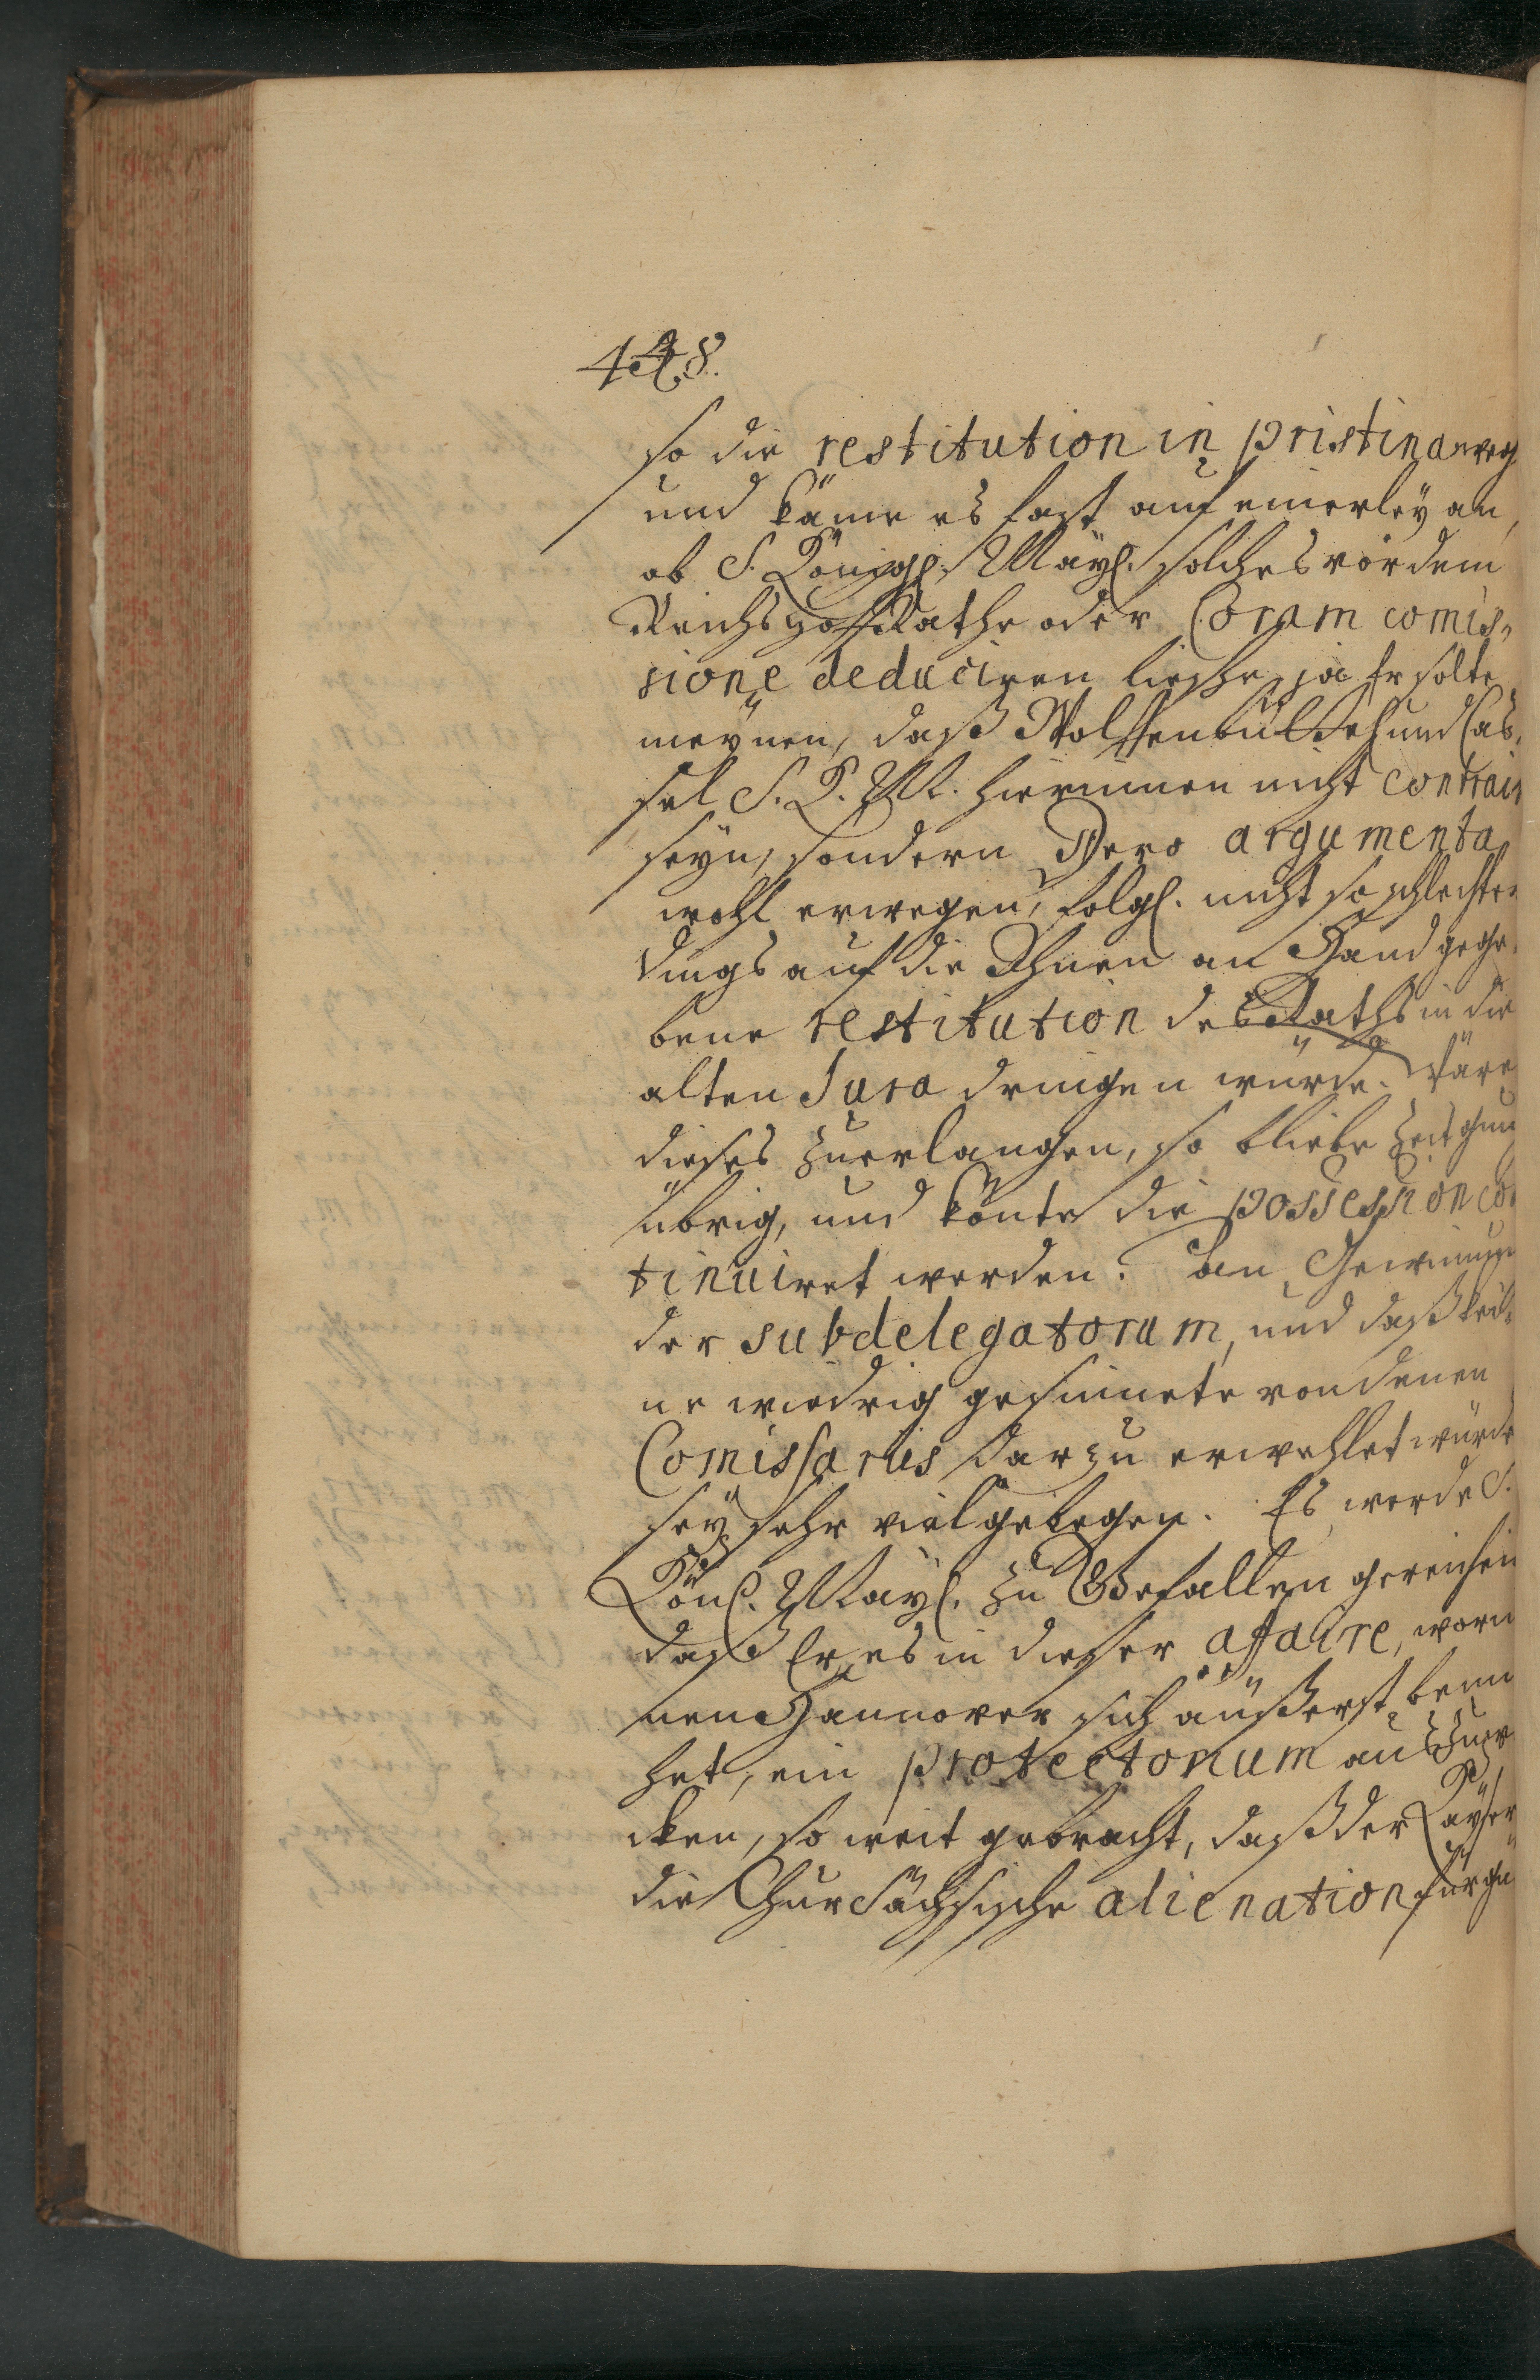 448.
so die restitution in pristina weg
und käme es fast auf einerley an,
ob S. Königl. Mayt. solches vor dem
Reichs Hoff Rathe oder Coram comis-
sione deduciren liesse, ja Er solte
meynen, daß Wolffenbüttel und Cas-
sel S. K. M. hierinnen nicht contrair
seyn, sondern Dero argumenta
wohl erwegen, folgl. nicht so schlechter
dings auf die Ihnen an Hand gege-
bene restitution des Raths in die
alten Jura dringen würde. Wäre
dieses zu erlangen, so bliebe Zeit gnug
übrig, und könte die possession con
tinuiret werden. An Gewinnung
der subdelegatorum, und daß kei-
ne wiedrig gesinnete von denen
Comissariis darzu erwehlet würde
sey sehr viel gelegen. Es werde S.
Königl. Mayt. zu Gefallen gereichen
daß Er es in dieser affaire, worin
nen Hannover sich äußerst bemü
het, ein protectorium auszuwür
cken, so weit gebracht, daß der Kayser
die ChurSächsische alienation für gu